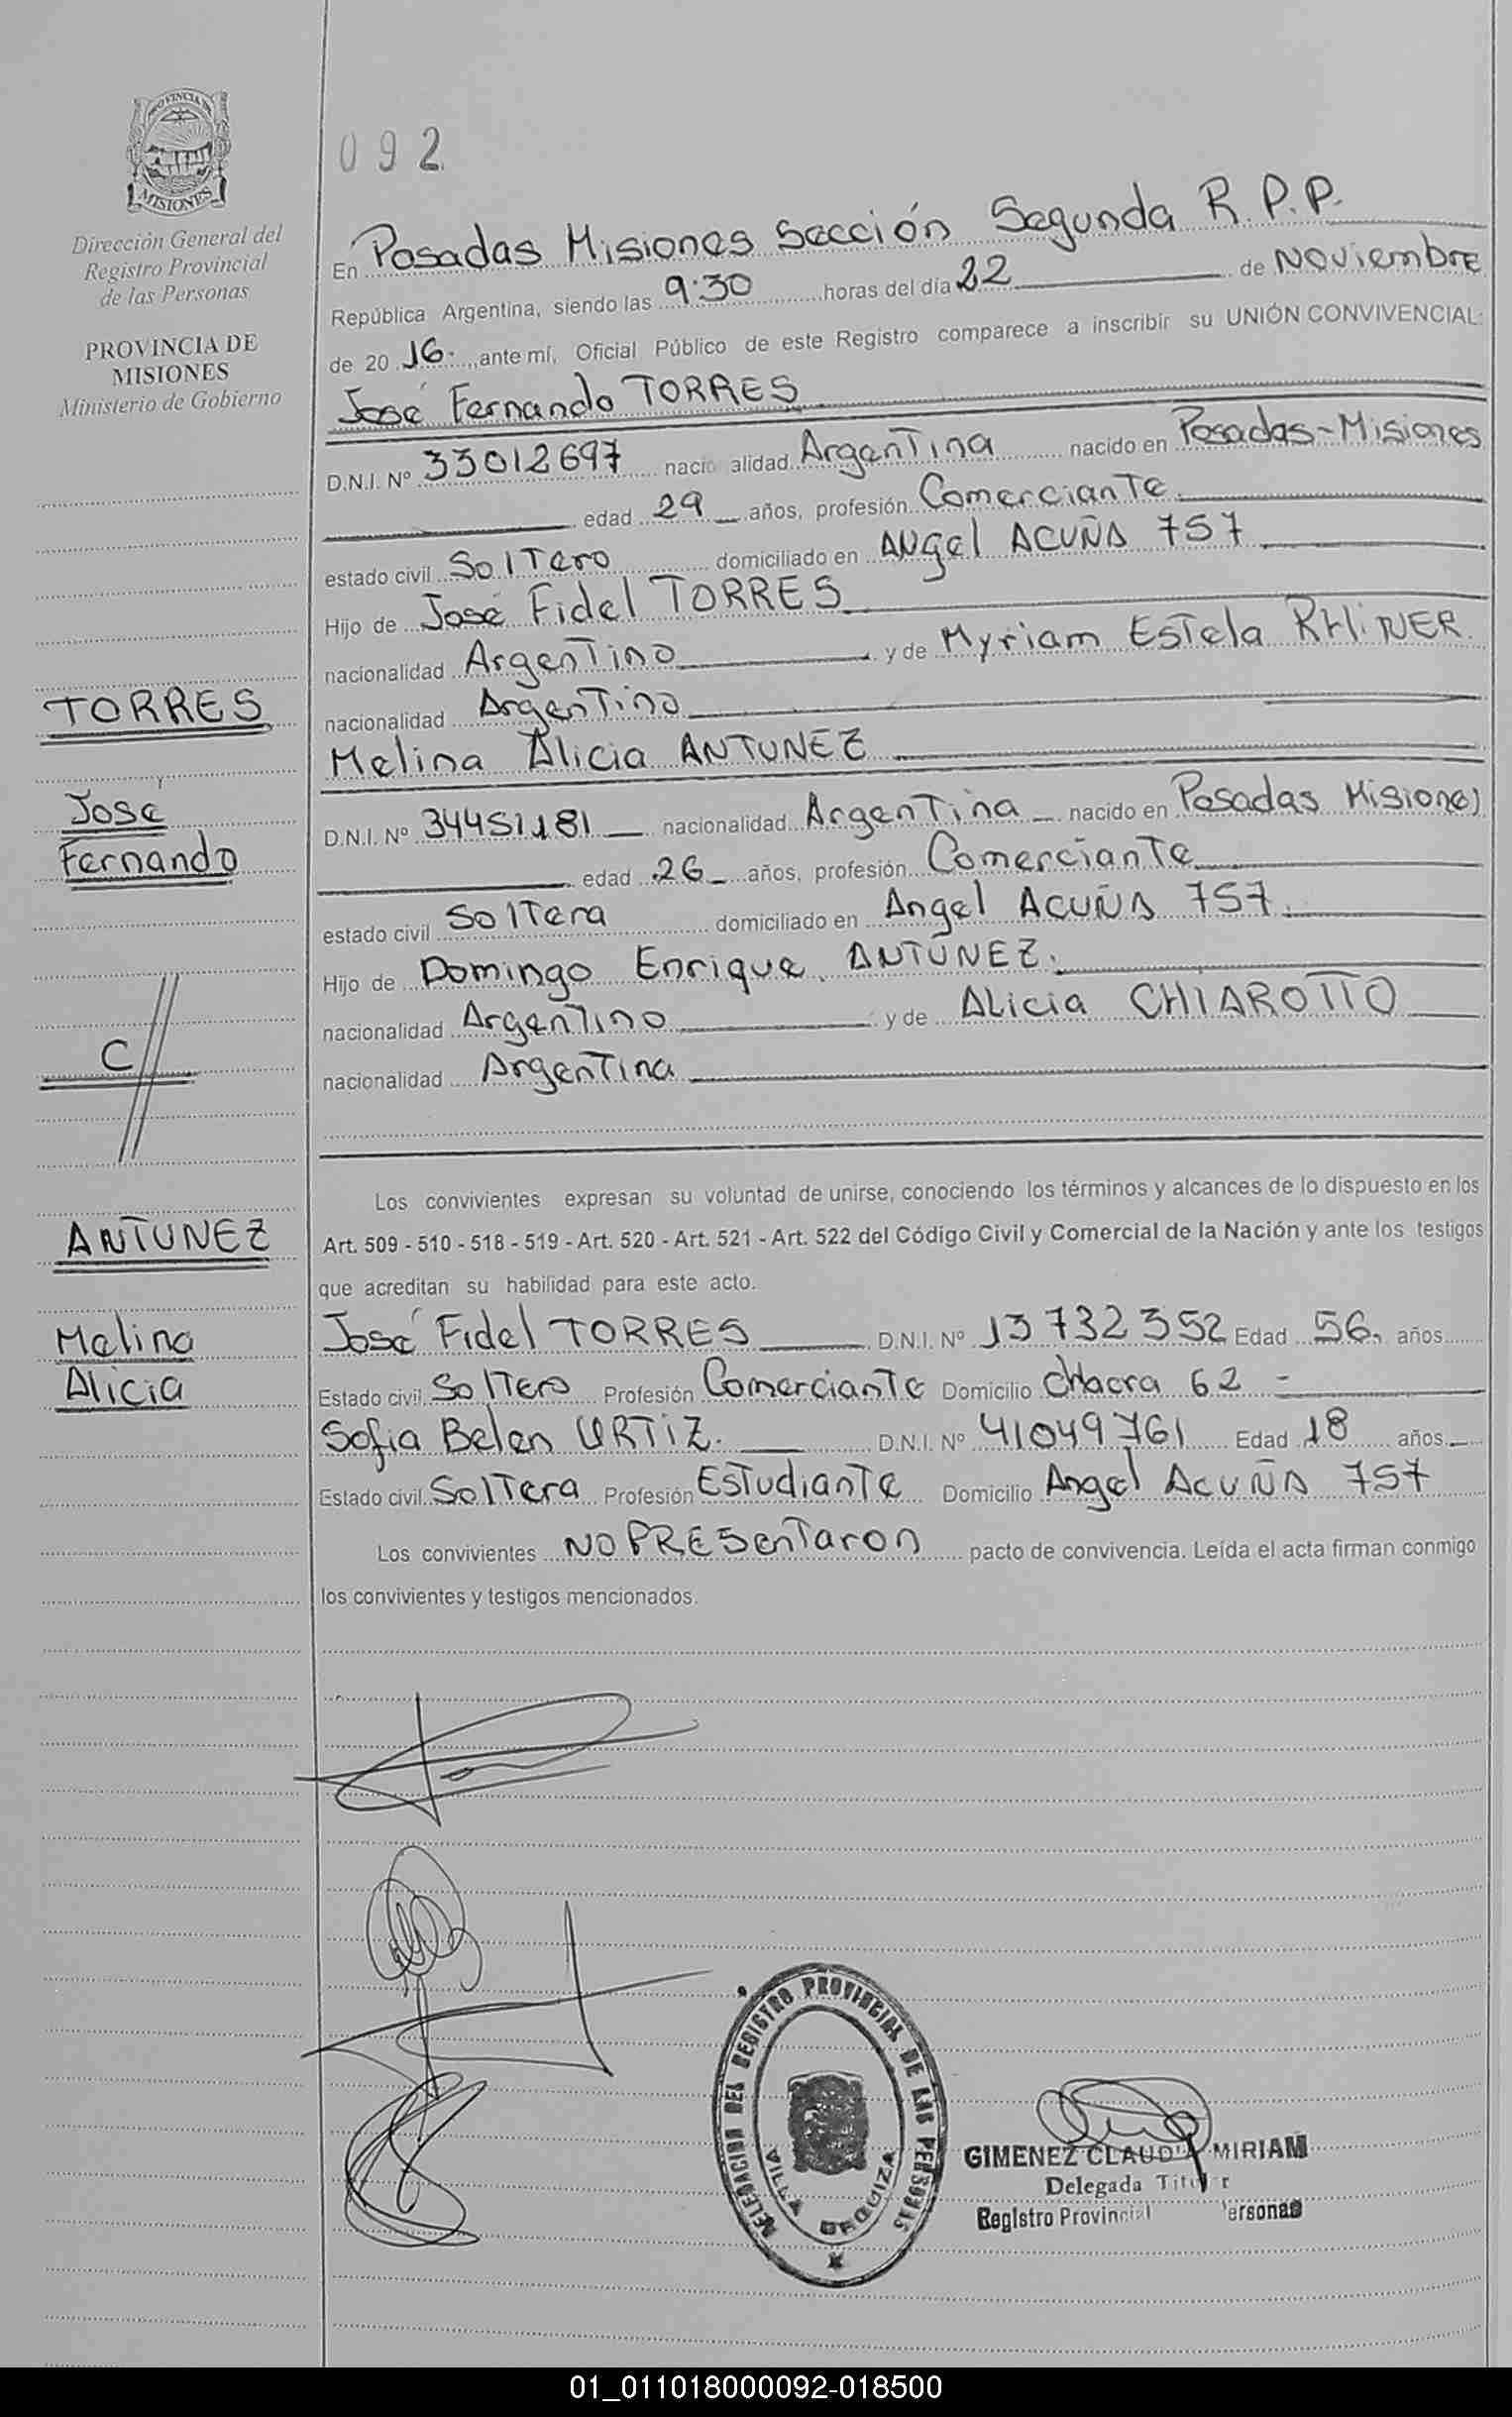 PROVINCIA DE
MISIONES
Dirección General del
Registro Provincial
de las Personas
PROVINCIA DE
MISIONES
Ministerio de Gobierno
TORRES
José
Fernando
C//
ANTUNEZ
Melina
Alicia
092
En Posadas Misiones Sección Segunda R.P.P.
República Argentina, siendo las 9:30 horas del día 22 de Noviembre
de 20 16. ante mí, Oficial Público de este Registro comparece a inscribir su UNIÓN CONVIVENCIAL:
José Fernando TORRES
D.N.I. Nº 33012697 nacionalidad Argentina nacido en Posadas-Misiones
edad 29 años, profesión Comerciante
estado civil Soltero domiciliado en Angel ACUÑA 757
Hijo de José Fidel TORRES
nacionalidad Argentino y de Myriam Estela RHINER.
nacionalidad Argentino
Melina Alicia ANTUNEZ
D.N.I. Nº 34451181 nacionalidad Argentina nacido en Posadas Misiones
edad 26 años, profesión Comerciante
estado civil Soltera domiciliado en Angel ACUÑA 757.
Hijo de Domingo Enrique ANTÚNEZ.
nacionalidad Argentino y de Alicia CHIAROTTO
nacionalidad Argentina
Los convivientes expresan su voluntad de unirse, conociendo los términos y alcances de lo dispuesto en los
Art. 509 - 510 - 518 - 519 - Art. 520 - Art. 521 - Art. 522 del Código Civil y Comercial de la Nación y ante los testigos
que acreditan su habilidad para este acto.
José Fidel TORRES D.N.I. Nº 13732352 Edad 56. años
Estado civil Soltero Profesión Comerciante Domicilio Chacra 62 -
Sofia Belen URTIZ. D.N.I. Nº 41049761 Edad 18 años
Estado civil Soltera Profesión Estudiante Domicilio Angel Acuña 757
Los convivientes NO PRESentaron pacto de convivencia. Leída el acta firman conmigo
los convivientes y testigos mencionados.
DELEGACION DEL REGISTRO PROVINCIAL DE LAS PERSONAS
VILLA URQUIZA
GIMENEZ CLAUDIA MIRIAM
Delegada Titular
Registro Provincial Personas
01_011018000092-018500